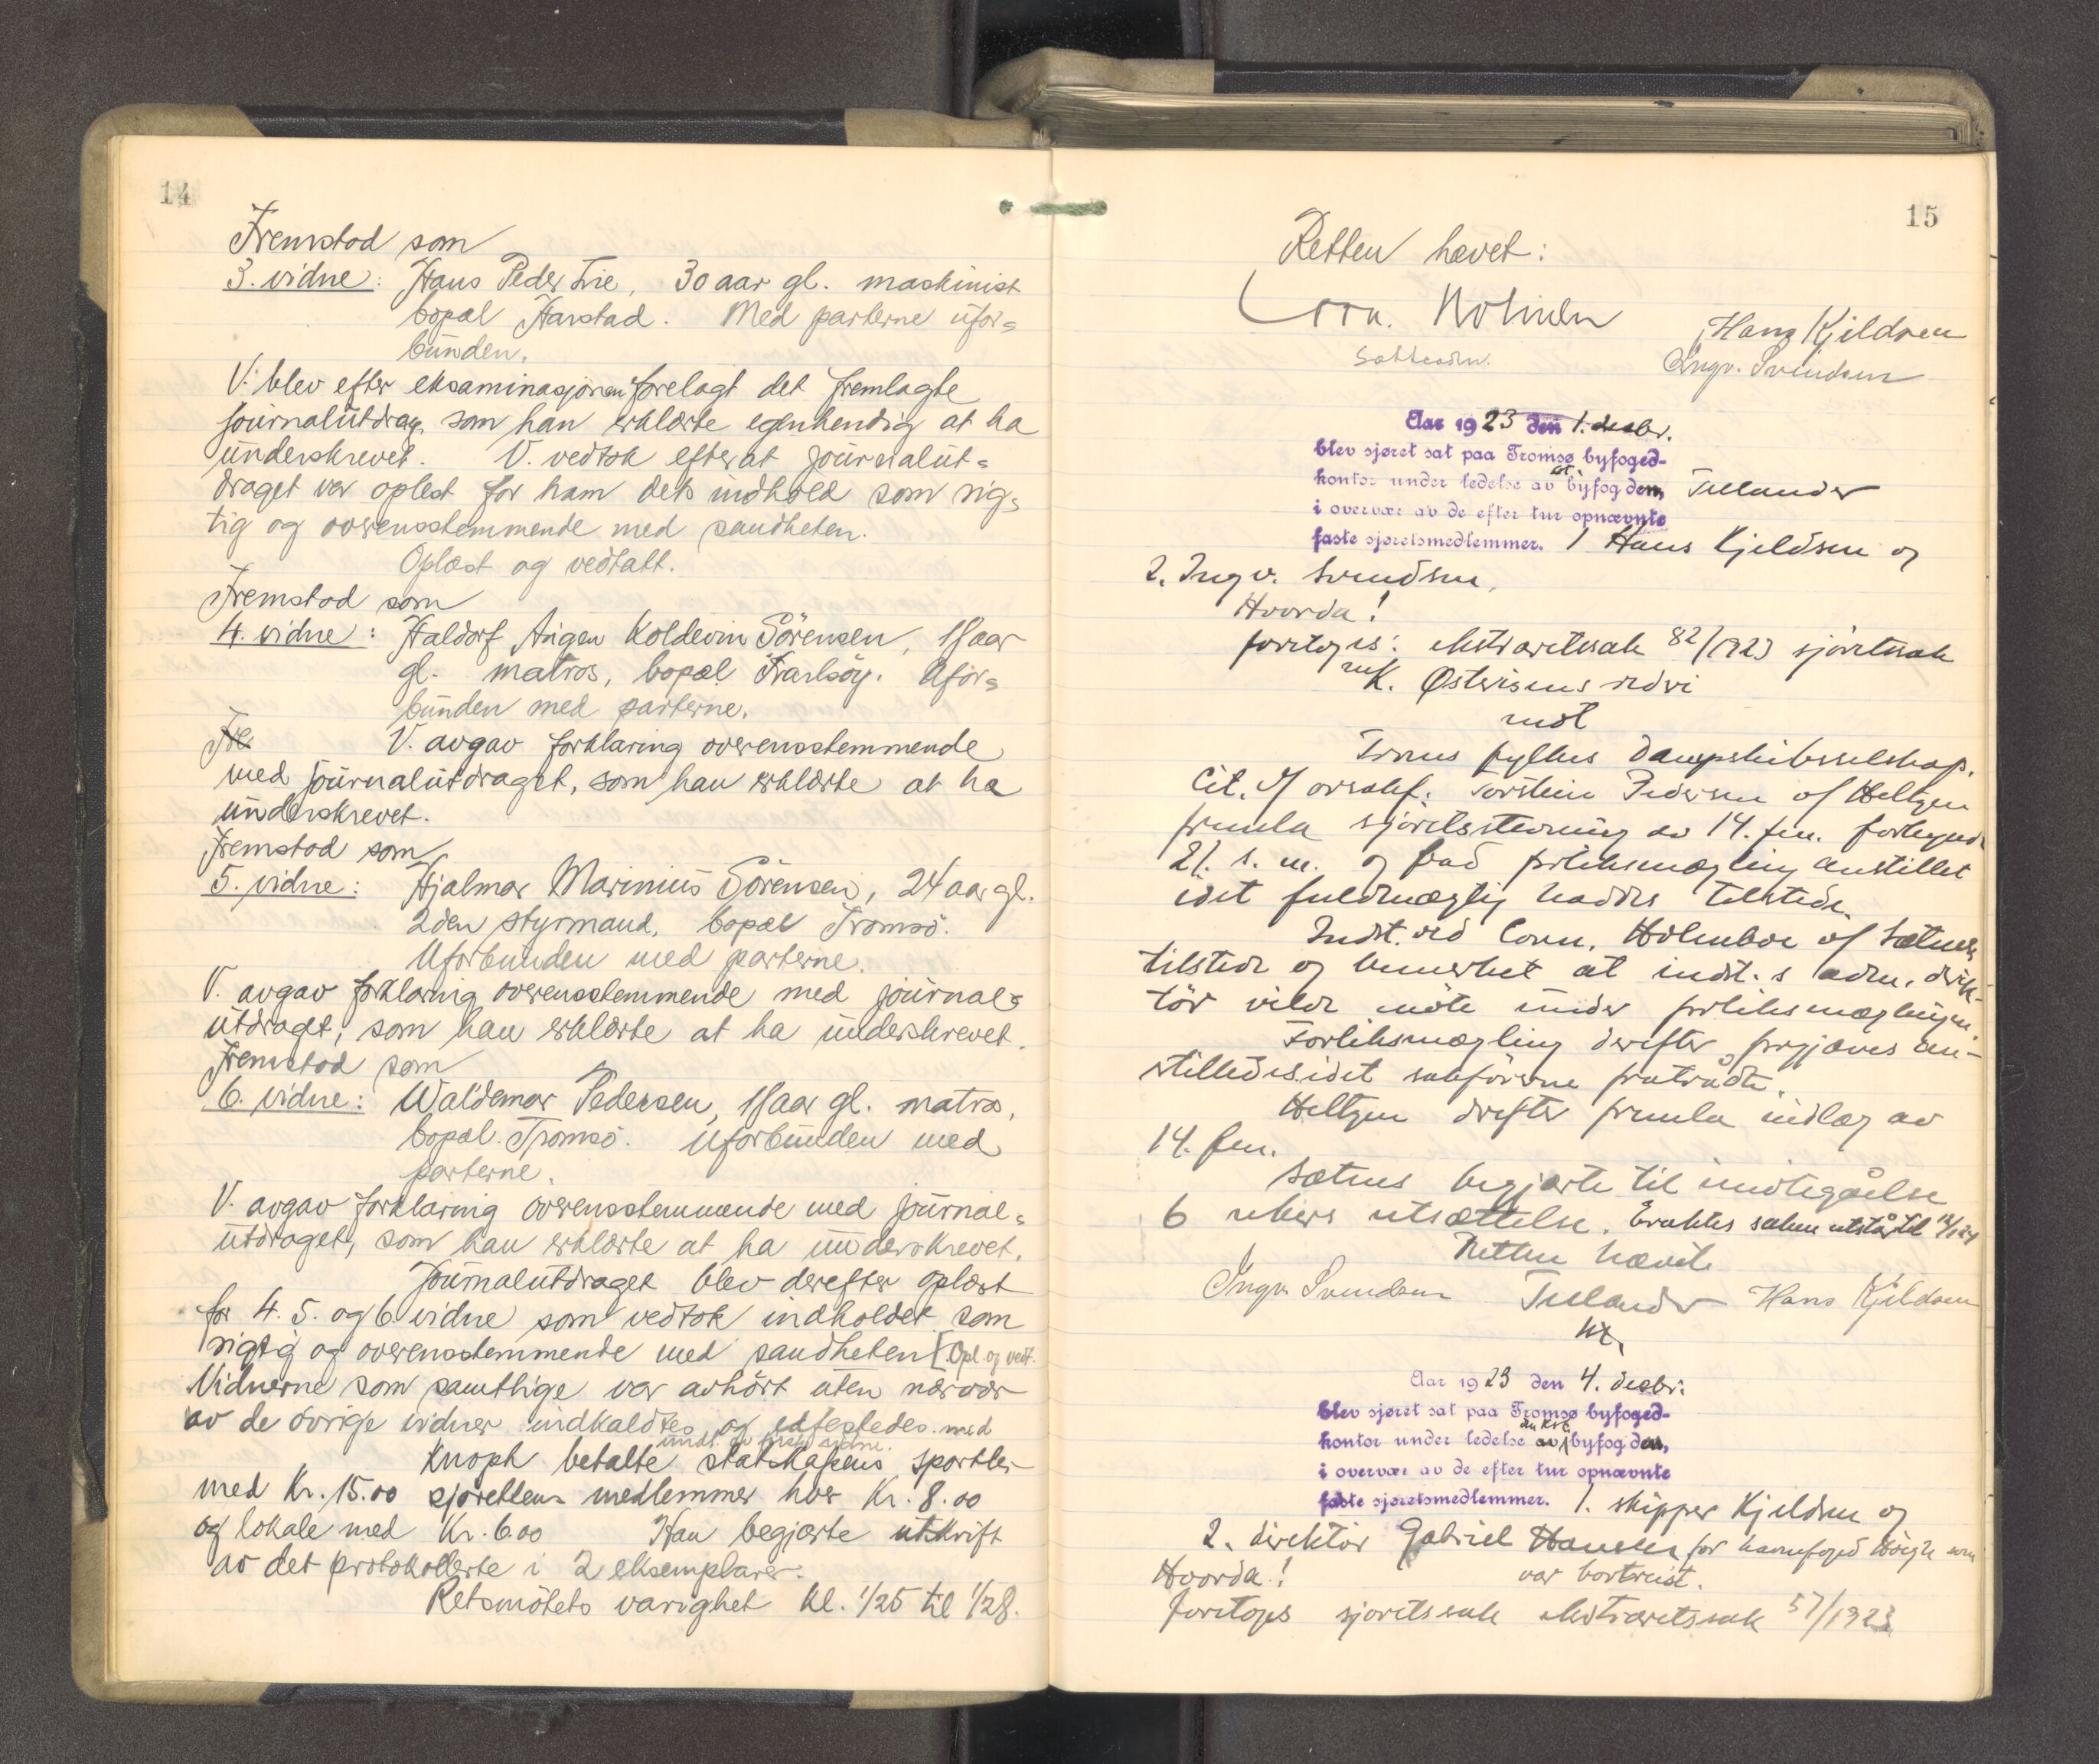 14
Fremstod som
3. vidne: Hans Peder Lie, 30 aar gl. maskinist
bopæl Harstad. Med parterne ufor=
bunden.
V. blev efter eksaminasjonen forelagt det fremlagte
journalutdrag som han erklærte egenhendig at ha
underskrevet. V. vedtok efterat journalut=
draget var oplest for ham dets indhold som rig=
tig og overensstemmende med sandheten.
Oplæst og vedtatt.
Fremstod som
4. vidne: Haldorf Angen Koldevin Sörensen, aar
gl. matros, bopæl Karlsöy. Ufor=
bunden med parterne.
Fre V. avgav forklaring overensstemmende
med journalutdraget, som han erklærte at ha
underskrevet.
Fremstod som
5. vidne: Hjalmar Marinius Sörensen, 24 aar gl.
2den styrmand, bopæl Tromsö.
Uforbunden med parterne.
V. avgav forklaring overensstemmende med journal=
utdraget, som han erklærte at ha underskrevet.
Fremstod som
6. vidne: Waldemar Pedersen, aar gl. matros,
bopæl Tromsö. Uforbunden med
parterne.
V. avgav forklaring overensstemmende med journal=
utdraget, som han erklærte at ha underskrevet.
Journalutdraget blev derefter oplæst
for 4. 5. og 6. vidne som vedtok indholdet som
rigtig og overensstemmende med sandheten [Opl. og vedt.
Vidnerne som samtlige var avhört uten nærvær
av de övrige vidner indkaldtes og edfestedes med
undt. av
Knoph betalte statskassens sportler
med Kr. 15.00 sjörettens medlemmer hver Kr. 8.00
og lokale med Kr. 6.00 Han begjærte utskrift
av det protokollerte i 2 eksemplarer.
Retsmötets varighet kl. 1/25 til 1/28.
15
Retten hævet:
Corn. Holmboe Hans Kjeldsen
Ingv. Svendsen
Aar 1923 den 1. desbr.
blev sjøret sat paa Tromsø byfoged-
kontor under ledelse av byfogden, Tellander
i overvær av de efter tur opnævnte
faste sjøretsmedlemmer. 1 Hans Kjeldsen og
2. Ingv. Svendsen.
Hvorda!
foretoges: ekstraretssak 82/1923 sjöretssak
K. Østvisens rederi
mot
Troms fylkes Dampskibsselskap.
Cit. v/ orsakf. Torstein Pedersen v/ Heltzen
fremla sjøretsstevning av 14. f.m. forkyndt
21. s. m. og bad forliksmægling anstillet
idet fuldmægtig hadde tilstede.
Indst. ved Corn. Holmboe v/ Sætnes
tilstede og bemerket at indst.s adm. direk-
tör vilde möte under forliksmæglingen.
Forliksmægling derefter forgjæves an-
stilledes idet sakførerne fratrådte.
Heltzen derefter fremla indlæg av
14. f.m.
Sætnes begjærte til imötegåelse
6 ukers utsættelse. Eraktes saken utstår til 12/1 24
Retten hævet.
Ingv. Svendsen Tellander Hans Kjeldsen
Aar 1923 den 4. desbr.
blev sjøret sat paa Tromsø byfoged-
kontor under ledelse av byfogden,
i overvær av de efter tur opnævnte
faste sjøretsmedlemmer. 1. skipper Kjeldsen og
2. direktör Gabriel Hansen for havnefoged som
Hvorda! var bortreist.
Foretoges sjøretssak ekstraretssak 57/1923